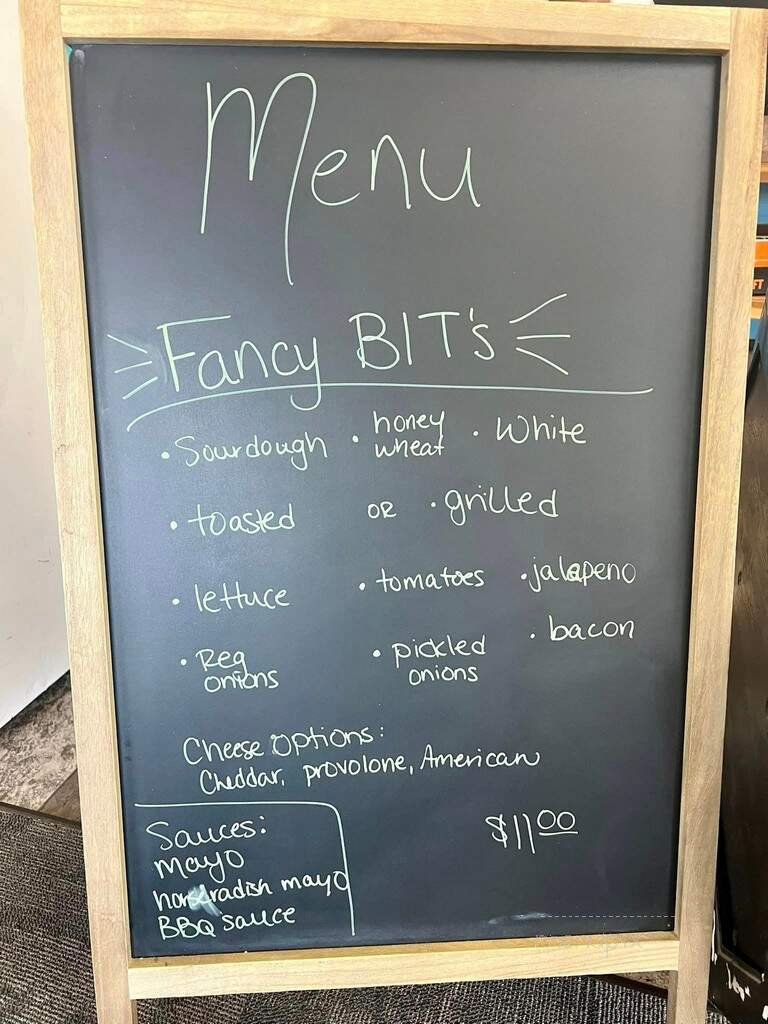 Menu
Fancy BIT's
• Sourdough • honey wheat • White
• toasted OR • grilled
• lettuce • tomatoes • jalapeno
• Reg onions • pickled onions • bacon
Cheese Options:
Cheddar, provolone, American
Sauces:
mayo
horseradish mayo
BBQ sauce
$11.00